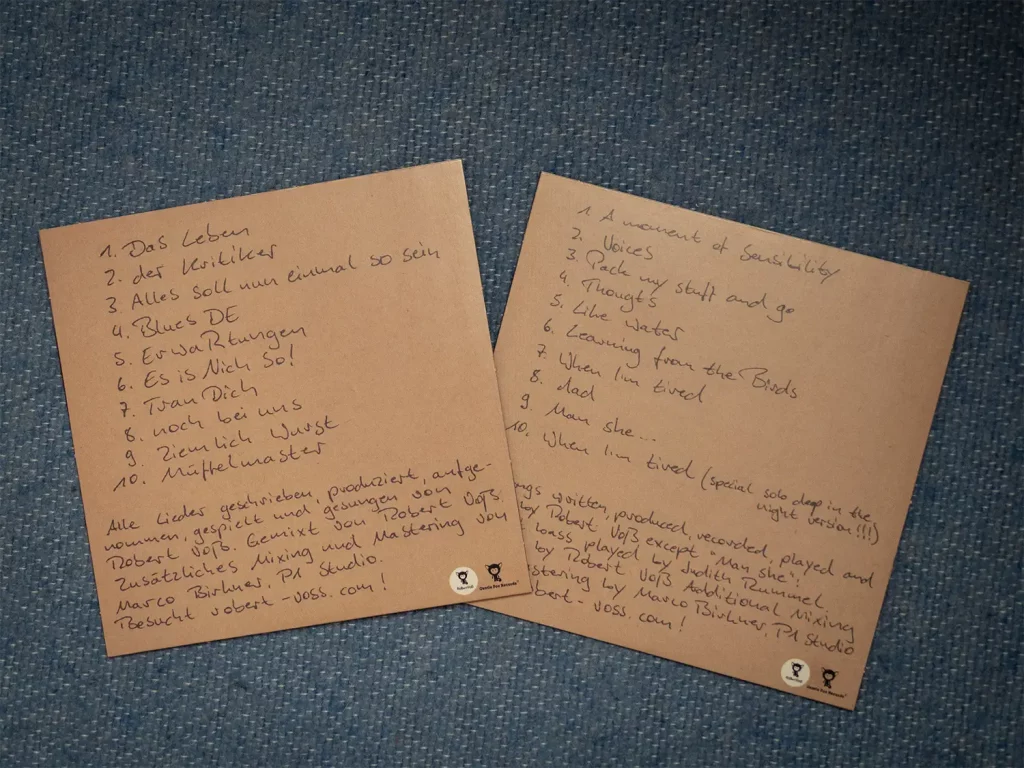 1. Das Leben
2. der Kritiker
3. Alles soll nun einmal so sein
4. Blues DE
5. ErwaRtungen
6. Es is Nich So!
7. Trau Dich
8. noch bei uns
9. Ziemlich Wurst
10. Müffelmaster
Alle Lieder geschrieben, produziert, aufge-
nommen, gespielt und gesungen von
Robert Voß. Gemixt von Robert Voß.
Zusätzliches Mixing und Mastering von
Marco Birkner, P1 Studio.
Besucht robert-voss.com!
1. A moment of Sensibility
2. Voices
3. Pack my stuff and go
4. Thougts
5. Like water
6. Learning from the Birds
7. When I'm tired
8. dad
9. Man she...
10. When I'm tired (special solo deep in the
night version!!!)
ngs written, produced, recorded, played and
by Robert Voß except "Man she":
bass played by Judith Rummel
by Robert Voß Additional Mixing
stering by Marco Birkner, P1 Studio
obert-voss.com!